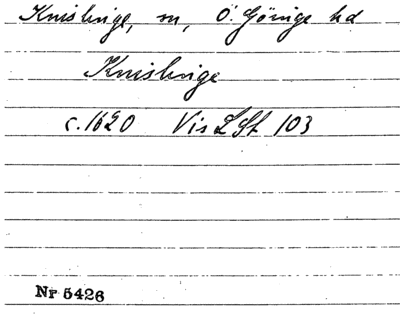 Knislinge, sn, Ö. Göinge hd
Knislinge
c. 1620 Vis LSt 103
Nr 5426